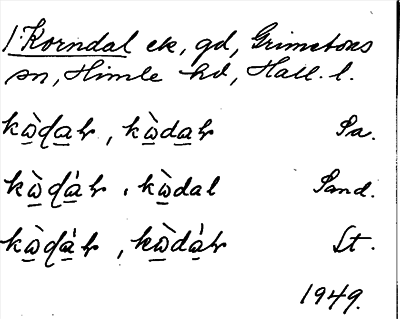 1. Korndal ek, gd, Grimetons
sn, Himle hd, Hall. l.
kὼ̠ɖa̠ƚ, kὼ̠da̠ƚ Pa.
kὼ̠ɖá̠ƚ, kὼ̠dal Sand.
kὼ̠ɖá̠ƚ, kὼ̠dá̠ƚ St.
1949.